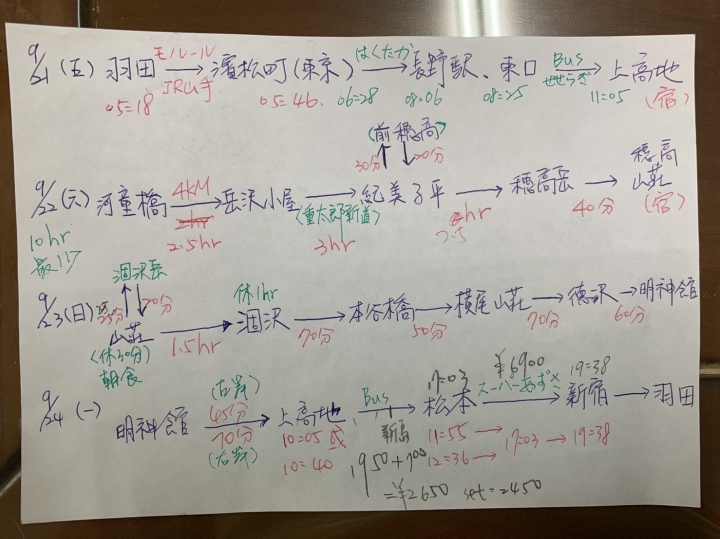 9/21 (五) 羽田 モルール JR山手 → 濱松町(東京) はくたか → 長野駅、東口 Bus せせらぎ → 上高地
05=18 05=46. 06=28 08=06 08=25 11=05 (宿)
(前穂高)
30分 ↑ ↓ 20分
9/22 (六) 河童橋 4KM → 岳沢小屋 → 紀美子平 → 穂高岳 → 穂高山莊
2.5hr (重太郎新道) 3hr 2.5hr 40分 (宿)
10hr
涸沢岳
25分 ↑ ↓ 20分
9/23 (日) 山莊 → 涸沢 → 本谷橋 → 横尾山莊 → 德沢 → 明神館
休1hr
1.5hr 70分 50分 70分 60分
(休30分)
朝食
9/24 (一) 明神館 → 上高地 Bus → 松本 → 新宿 → 羽田
(左岸) 45分
70分 (右岸)
17=03 ¥6900 スーパーあずさ 19=38
10=05 或 11=55 → 17=03 → 19=38
10=40 12=36 →
1950+700
=¥2650 set=2450